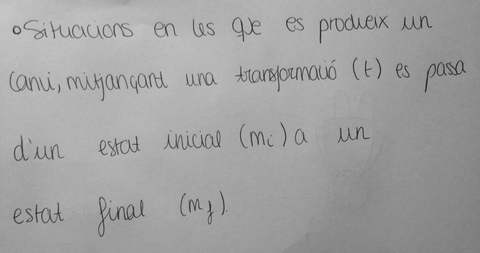 •Situacions en les que es produeix un
canvi, mitjançant una transformació (t) es pasa
d'un estat inicial (mi) a un
estat final (mf).